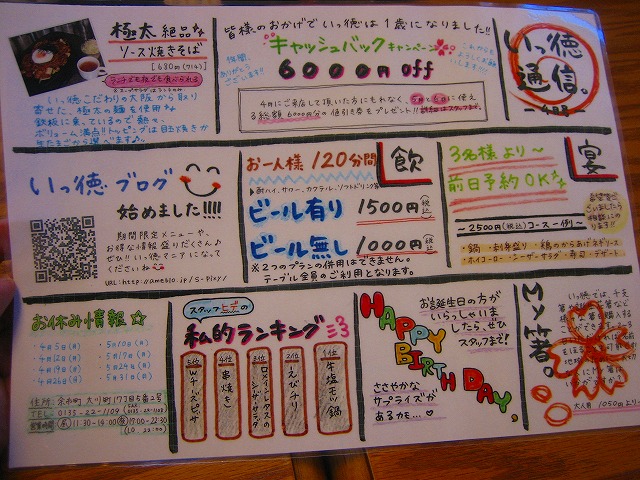 極太 絶品
ソース焼きそば
[680円(フル)]
いっ徳こだわりの大阪から取り
寄せた、極太の麺を使用
鉄板に乗っているので熱々、
ボリューム満点!!トッピングは目玉焼きか
皆様のおかげでいっ徳は1歳になりました!!
ありがとうございます!!
キャッシュバックキャンペーン
6000円off
4月にご来店して頂いた方にもれなく、5月と6月に使え
る総額6000円分の値引き券をプレゼント!!詳細はスタッフまで。
いっ徳
通信。
いっ徳ブログ
始めました!!!!
期間限定メニューや、
お得な情報盛りだくさん♪
ぜひ!!いっ徳マニアになって
くださいね
URL:http://ameblo.jp/s-pixy/
お一人様 120分間
飲
▶酎ハイ、サワー、カクテル、ソフトドリンク等
ビール有り 1500円(税込)
ビール無し 1000円(税込)
※2つのプランの併用はできません。
テーブル全員のご利用となります。
3名様より〜
宴
前日予約OK
〜2500円(税込)コース一例〜
・鍋・刺身盛り・鶏のからあげネギソース
・ホイコーロー・シーザーサラダ・寿司・デザート
お休み情報☆
・4月5日(月)
・4月12日(月)
・4月19日(月)
・4月26日(月)
・5月10日(月)
・5月17日(月)
・5月24日(月)
・5月31日(月)
住所:余市町大川町17丁目5番2号
TEL:0135-22-1109
FAX 0135-22-1108
営業時間 11:30-14:00 17:00-22:30
(LO 22:00)
スタッフ
私的ランキング
5位 Wチーズピザ
4位 串焼き
3位 ロメインレタスのシーザーサラダ
2位 えびチリ
1位 牛塩モツ鍋
HAPPY BIRTH DAY,
お誕生日の方が
いらっしゃいま
したら、ぜひ
スタッフまで!
ささやかな
サプライズが
あるカモ…♡
My箸。
大人用 1050円より〜